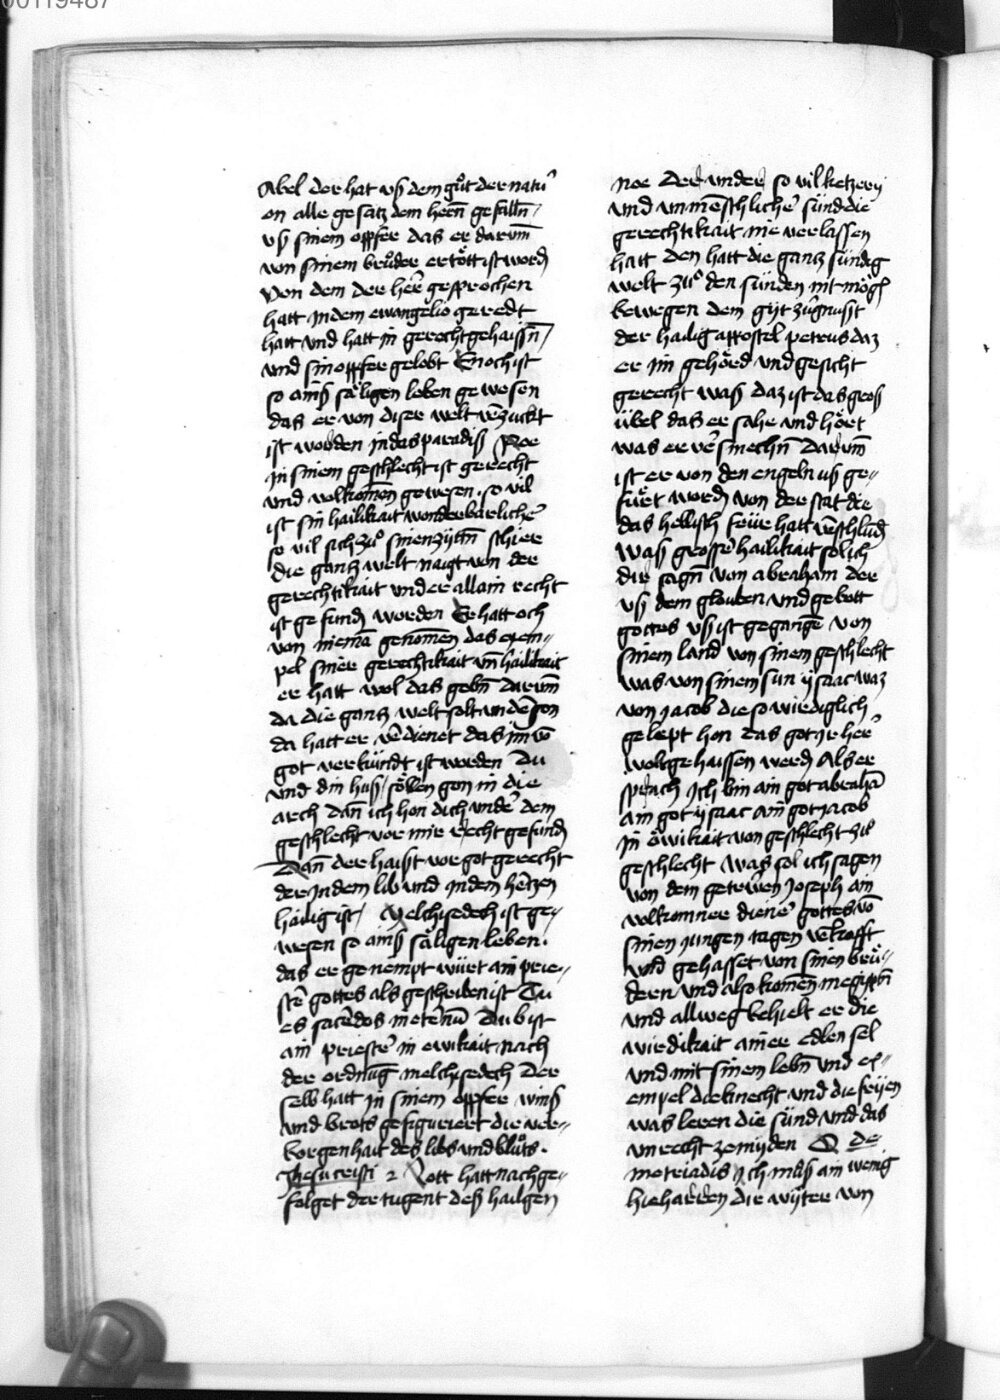 00119487
Abel der hat vß dem gůt der natur̄
on alle gesatz dem herrn̄ gefalln̄ /
vß sinem opffer das er darum̄
von sinem brůder ertött ist word̄
Von dem der herr̄ gesprochen
hatt in dem ewangelio geredt
hatt vnd hatt in gerecht gehaissn̄ /
vnd sin opffer gelobt Enoch ist
so ains säligen leben gewesen
das er von diser welt v̄zuckt
ist worden in das paradiß Noe
in sinem geschlecht ist gerecht
vnd volkom̄en gewesen . so vil
ist sin hailikait wonderbarlich̄
so vil sich zů sinen zijtn̄ schier
die gantz welt naigt von der
gerechtikait vnd er allain recht
ist gefund̄ worden Er hatt och
von niemā genom̄en das exem⸗
pel siner gerechtikait vn̄ hailikait
er hatt wol das gebn̄ darum̄
da die gantz welt solt vnd̄gon
da hatt er v̄dienet das im vō
got verkündt ist worden Du
vnd din huß / söllen gon in die
arch dan̄ ich hon dich vnder̄ dem
geschlecht vor mir recht gefund̄
Dan̄ der haist vor got gerecht
der in dem lib vnd in dem hertzen
hailig ist / Melchisedech ist ge⸗
wesen so ains säligen leben .
das er genempt würt ain prie⸗
ster̄ gottes als geschriben ist Tu
es sacerdos in eternū Du bist
ain priester̄ in ewikait nach
der ordnūg melchisedech Der
selb hatt in sinem opffer wins
vnd brots gefiguriert die ver⸗
borgenhait des libs vnd blůts .
Jhesu cristi 2 Lott hatt nachge⸗
folget der tugent deß hailgen
noe Der vnder so vil ketzery
vnd vnmēschlicher̄ sünd die
gerechtikait nie verlassen
hatt den hatt die gantz sündig
welt zů den sünden nit möḡ
bewegen dem gijt zügnusst
der hailig appostel petrus daz
er im gehörd vnd gesicht
gerecht waß daz ist das groß
übel das er sahe vnd hört
was er v̄smechn̄ Darum̄
ist er von den engeln vß ge⸗
fürt word̄ von der stat die
das hellisch feüre hatt v̄schlund̄
Waß grosser̄ hailikait sol ich
dir sagn̄ von abraham der
vß dem glouben vnd gebott
gottes vß ist gegangē von
sinem land von sinem geschlecht
was von sinem sun ysaac waz
von jacob die so wirdiglich
gelept hon das got ir her̄
wolt gehaissen werd̄ Als er
sprach Ich bin ain got abrahā
ain got ysaac ain got jacob
in öwikait von geschlecht zů
geschlecht Was sol ich sagen
von dem getrüwen Joseph ain
volkomner diener̄ gottes vō
sinen jungen tagen v̄kofft
vnd gehasset von sinen brü⸗
dern vnd also komen in egiptn̄
vnd allweg behielt er die
wirdikait ainer edlen sel
vnd mit sinem lebn̄ vnd ex⸗
empel die knecht vnd die frijen
was leren die sünd vnd das
vnrecht ze mijden O de⸗
moteiadis Ich můß ain wenig
hie harren die wijter von